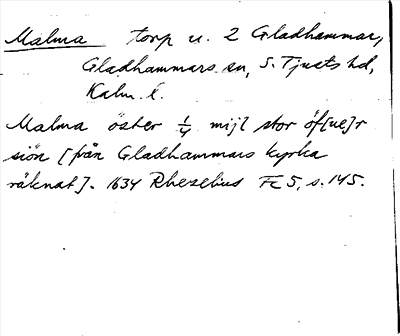 Malma torp u. 2 Gladhammar,
Gladhammars sn, S. Tjusts hd,
Kalm. l.
Malma öster 1/4 mijl stor öf[ue]r
siön [från Gladhammars kyrka
räknat]. 1634 Rhezelius FC 5, s. 145.